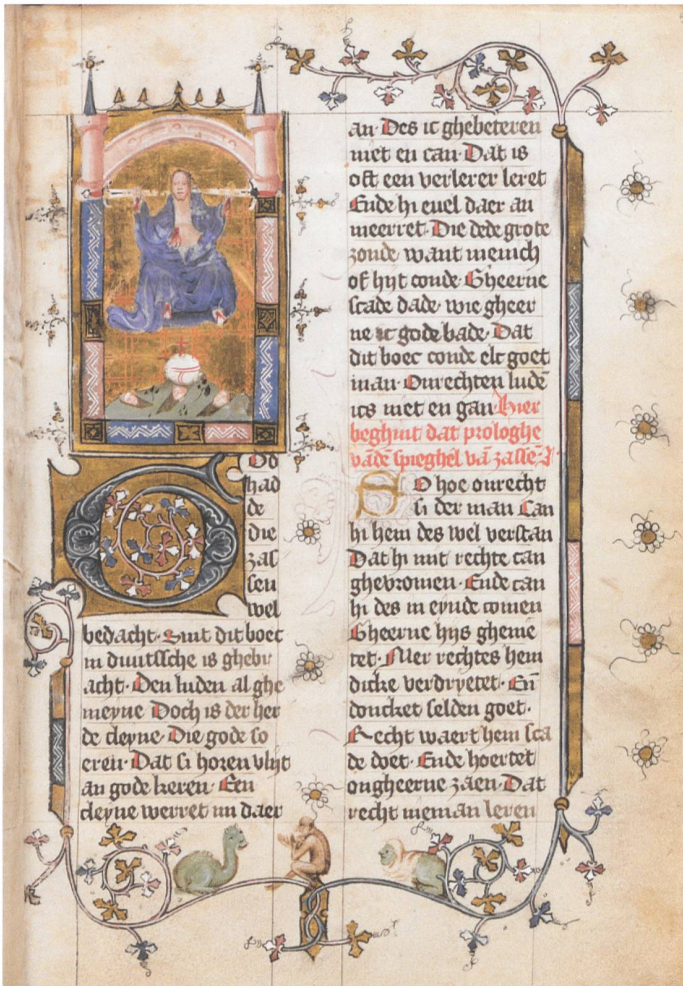 GOd
had
de
die
zas
sen
wel
bedacht· Sint dit boec
in duutssche is ghebr
acht· Den luden al ghe
meyne Doch is der her
de cleyne· Die gode so
eren· Dat si horen vlijt
an gode keren· Een
cleyne werret mi daer
an· Des ic ghebeteren
niet en can· Dat is
oft een verlerer leret
Ende hi euel daer an
meerret· Die dede grote
zonde· want menich
of hijt conde· Gheerne
scade dade· wie gheer
ne ic gode bade· Dat
dit boec conde elc goet
man· Onrechten ludē
ics niet en gan· Hier
beghint dat prologhe
vādē spieghel vā zassē·
SO hoe onrecht
si der man Can
hi hem des wel verstan
Dat hi mit rechte can
ghevromen· Ende can
hi des in eynde comen
Gheerne hijs ghenie
tet· Mer rechtes hem
dicke verdryetet· En̄
doncket selden goet·
Recht waert hem sca
de doet· Ende hoertet
ongheerne zaen· Dat
recht nieman leren